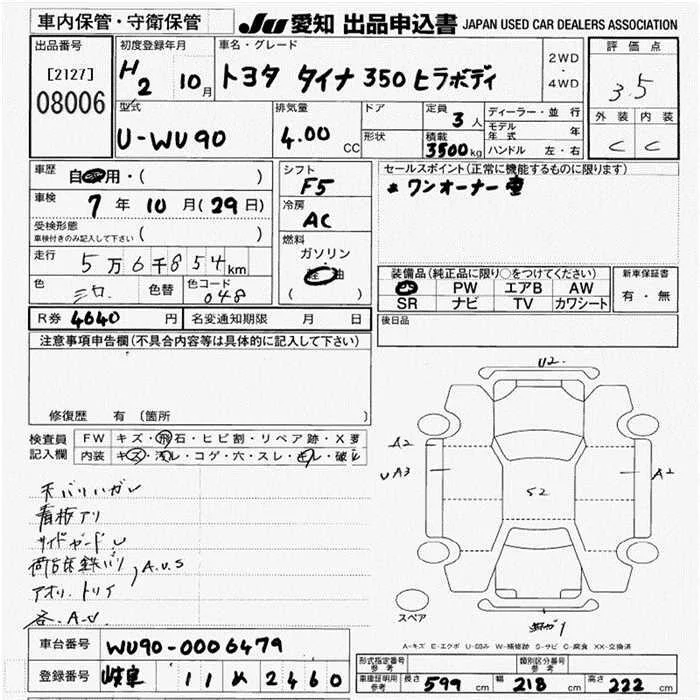 車内保管・守衛保管 JU 愛知 出品申込書 JAPAN USED CAR DEALERS ASSOCIATION
出品番号
[2127]
08006
初度登録年月
H2 10月
車名・グレード
トヨタ タイナ 350 ヒラボディ
2WD
・
4WD
評価点
3.5
外装 内装
C C
型式
U-WU90
排気量
4.00 CC
ドア
形状
定員 3人
積載 3500kg
ディーラー・並行
モデル年式 年
ハンドル 左・右
車歴 自家用・( )
車検 7年 10月(29日)
受検形態
車検付きのみ記入して下さい ( )
走行 5万6千854km
色 色替 色コード 048
シフト
F5
冷房
AC
燃料
ガソリン
軽油
( )
セールスポイント(正常に機能するものに限ります)
* ワンオーナー車
装備品(純正品に限り○をつけてください)
PS PW エアB AW
SR ナビ TV カワシート
新車保証書
有・無
R券 4640円 名変通知期限 月 日
後日品
注意事項申告欄(不具合内容等は具体的に記入して下さい)
修復歴 有 〔箇所 〕
検査員
記入欄
FW キズ・飛石・ヒビ割・リペア跡・X要
内装 キズ・汚れ・コゲ・穴・スレ・キレ・破レ
天バリハガレ
看板アリ
サイドガード U
荷台床鉄バリ
アオリ、トリイ, A.U.S
各.A.U
U2
A2
UA3
A2
S2
スペア
A-キズ E-エクボ U-凹み W-補修跡 S-サビ C-腐食 XX-交換済
車台番号 WU90-0006479
登録番号 岐阜 11 2460
形式指定番号
参考
類別区分番号
参考
車庫証明用
参考
長さ 599cm 幅 218cm 高さ 222cm